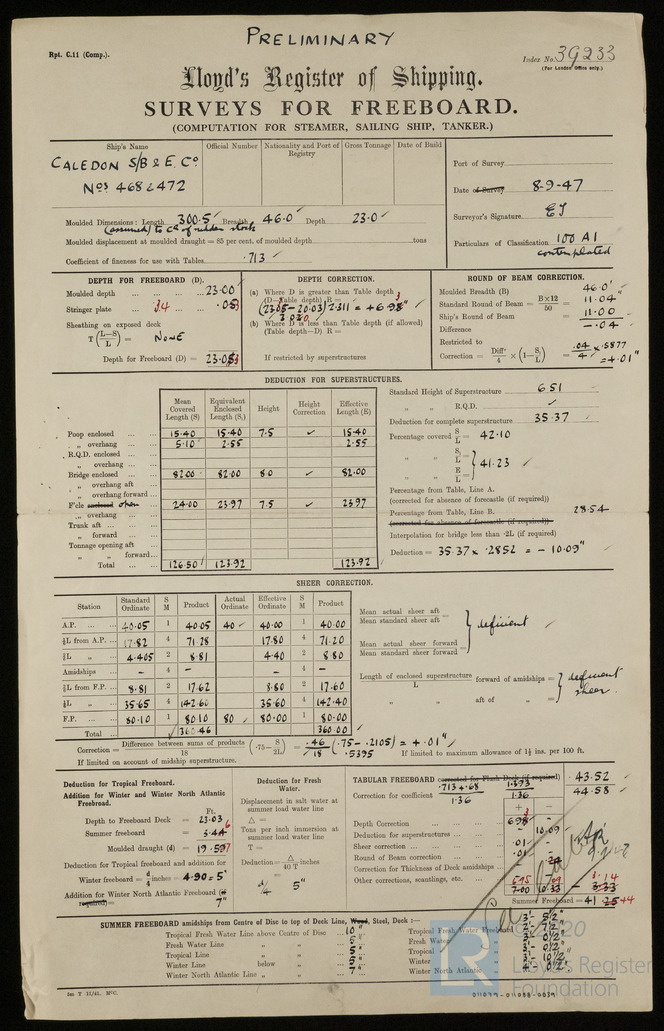 PRELIMINARY
Rpt. C.11 (Comp.).
Index No. 39233
(For London Office only.)
Lloyd's Register of Shipping.
SURVEYS FOR FREEBOARD.
(COMPUTATION FOR STEAMER, SAILING SHIP, TANKER.)
Ship's Name Official Number Nationality and Port of Registry Gross Tonnage Date of Build
CALEDON S/B & E. Co
Nos 468 & 472
Port of Survey
Date of Survey 8-9-47
Surveyor's Signature
Particulars of Classification 100 A1
contemplated
Moulded Dimensions: Length 300.5' Breadth 46.0' Depth 23.0'
(assumed) to CL of rudder stock
Moulded displacement at moulded draught = 85 per cent. of moulded depth tons
Coefficient of fineness for use with Tables .713
DEPTH FOR FREEBOARD (D).
Moulded depth 23.00
Stringer plate .34 .03
Sheathing on exposed deck
T(L−S/L) = NONE
Depth for Freeboard (D) = 23.03
DEPTH CORRECTION.
(a) Where D is greater than Table depth
(D−Table depth) R =
(23.03−20.03) 2.311 = +6.93"
(b) Where D is less than Table depth (if allowed)
(Table depth−D) R =
If restricted by superstructures
ROUND OF BEAM CORRECTION.
Moulded Breadth (B) 46.0'
Standard Round of Beam = B×12/50 = 11.04"
Ship's Round of Beam = 11.00
Difference −.04
Restricted to
Correction = Diff/4 × (1−S₁/L) = .04/4 × .5877 = +.01"
DEDUCTION FOR SUPERSTRUCTURES.
Mean Covered Length (S) Equivalent Enclosed Length (S₁) Height Height Correction Effective Length (E)
Poop enclosed 15.40 15.40 7.5 ✓ 15.40
„ overhang 5.10 2.55 2.55
R.Q.D. enclosed
„ overhang
Bridge enclosed 82.00 82.00 8.0 ✓ 82.00
„ overhang aft
„ overhang forward
F'cle enclosed open 24.00 23.97 7.5 ✓ 23.97
„ overhang
Trunk aft
„ forward
Tonnage opening aft
„ „ forward
Total 126.50 123.92 123.92
Standard Height of Superstructure 6.51
„ „ R.Q.D. ✓
Deduction for complete superstructure 35.37
Percentage covered S/L = 42.10
„ „ S₁/L =
„ „ E/L = 41.23
Percentage from Table, Line A.
(corrected for absence of forecastle (if required))
Percentage from Table, Line B. 28.54
(corrected for absence of forecastle (if required))
Interpolation for bridge less than ·2L (if required)
Deduction = 35.37 × .2852 = −10.09"
SHEER CORRECTION.
Station Standard Ordinate S M Product Actual Ordinate Effective Ordinate S M Product
A.P. 40.05 1 40.05 40 40.00 1 40.00
⅙L from A.P. 17.82 4 71.28 17.80 4 71.20
⅓L „ 4.405 2 8.81 4.40 2 8.80
Amidships − 4 − − 4 −
⅓L from F.P. 8.81 2 17.62 8.80 2 17.60
⅙L „ 35.65 4 142.60 35.60 4 142.40
F.P. 80.10 1 80.10 80 80.00 1 80.00
Total 360.46 360.00
Mean actual sheer aft
Mean standard sheer aft = deficient
Mean actual sheer forward
Mean standard sheer forward =
Length of enclosed superstructure forward of amidships
L = deficient sheer.
„ „ aft of „ =
Correction = Difference between sums of products/18 (.75−S/2L) = .46/18 (.75−.2105) = +.01"
.5395
If limited to maximum allowance of 1½ ins. per 100 ft.
If limited on account of midship superstructure.
Deduction for Tropical Freeboard.
Addition for Winter and Winter North Atlantic Freeboard.
Ft.
Depth to Freeboard Deck = 23.03
Summer freeboard = 3.44
Moulded draught (d) = 19.59
Deduction for Tropical freeboard and addition for
Winter freeboard = d/4 inches = 4.90 = 5"
Addition for Winter North Atlantic Freeboard (if required)= 7"
Deduction for Fresh Water.
Displacement in salt water at summer load water line
Δ =
Tons per inch immersion at summer load water line
T =
Deduction = Δ/40 T inches
= d/4 5"
TABULAR FREEBOARD corrected for Flush Deck (if required) 43.52
Correction for coefficient .713+.68/1.36 1.393/1.36 44.58
+ −
Depth Correction 6.93
Deduction for superstructures 10.09
Sheer correction .01
Round of Beam correction .01
Correction for Thickness of Deck amidships .24
Other corrections, scantlings, etc.
10.33 3.33
Summer Freeboard = 41.25
SUMMER FREEBOARD amidships from Centre of Disc to top of Deck Line, Wood, Steel, Deck :—
Tropical Fresh Water Line above Centre of Disc 10"
Fresh Water Line „ „ 5"
Tropical Line „ „ 5"
Winter Line below „ 5"
Winter North Atlantic Line „ „ 7"
Tropical Fresh Water Freeboard
Fresh Water
Tropical
Winter
Winter North Atlantic
© 2020
Lloyd's Register
Foundation
LR
1m T 11/41. MFC.
011039-011058-0039